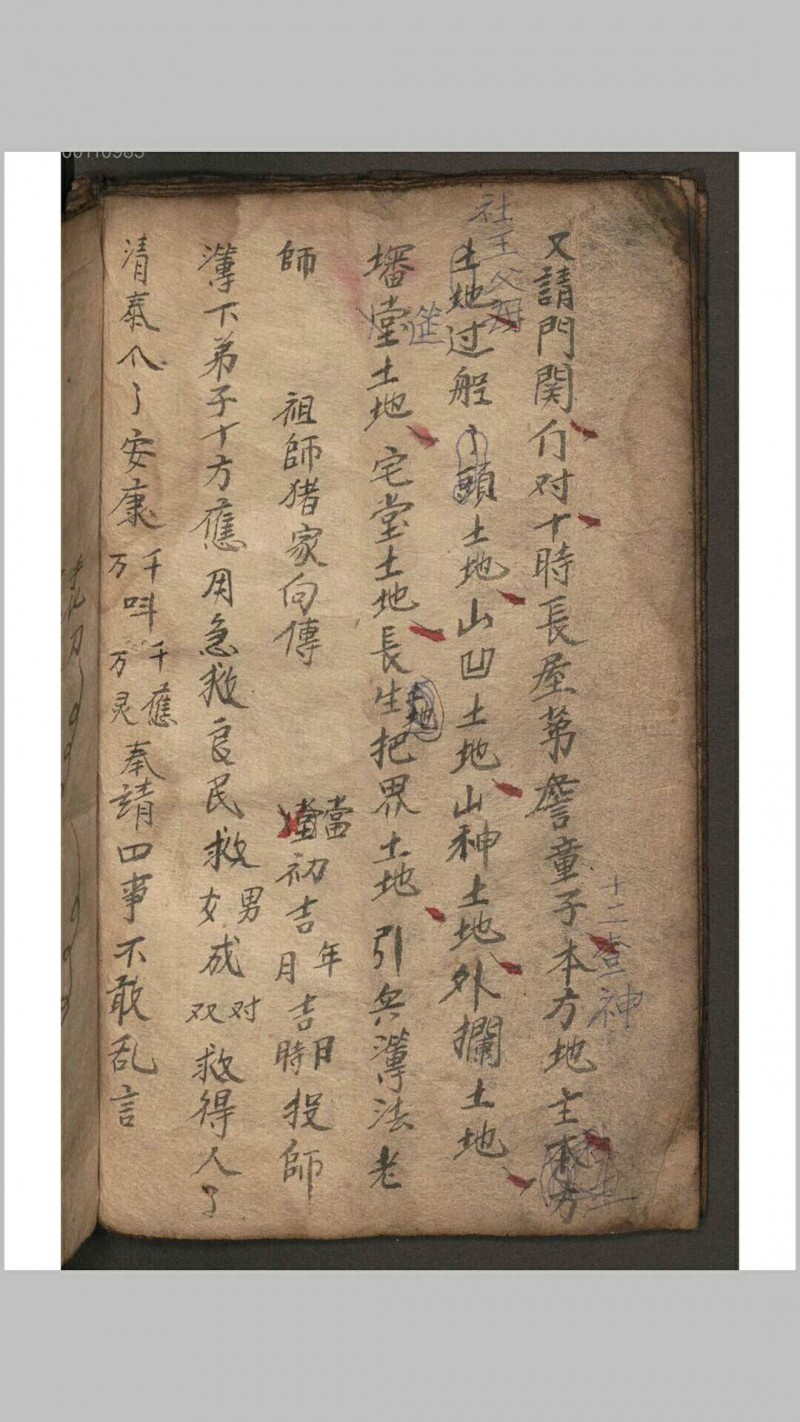 又請門関仃对十時長屋茅詹童子本方地主本方
十二查神
社王父母
土地过般丫頭土地山凹土地山神土地外攔土地
墦堂土地宅堂土地長生把界土地引兵簿法老
師 祖師猪家向傳 當初吉年吉月月時投師
簿下弟子十方應用急救良民救男女成对双救得人了
清泰人了安康千呌万千應万灵奉請四事不敢乱言